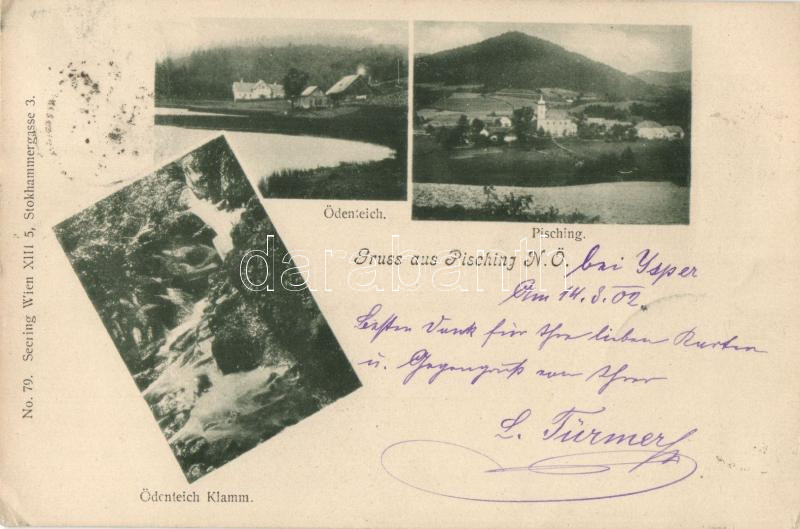 No. 79. Seering Wien XIII 5, Stokhammergasse 3.
Ödenteich.
Pisching.
Gruss aus Pisching N.Ö. bei Ysper
Am 14.3.02
Besten Dank für Ihre lieben Karten
u. Gegengruß von Ihrer
L. Türmer
Ödenteich Klamm.
darabanth.com